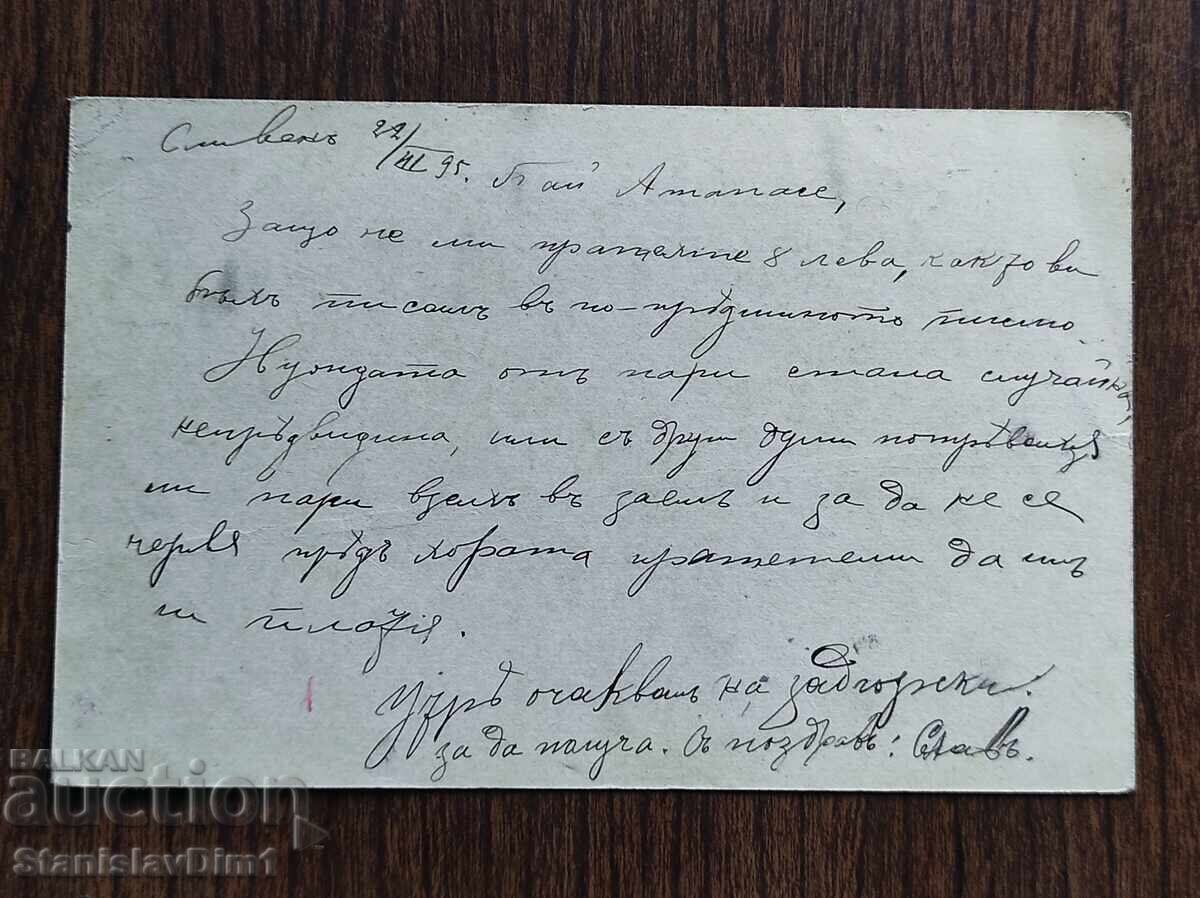 Сливенъ 22/III 95. Бай Атанасе,
Защо не ми пратяте 8 лева, какъо ви
бѣхъ писалъ въ по-прѣдишното писмо.
Нуождата отъ пари стана случайна,
непрѣдвидина, или съ други думи потрѣбваха
ми пари взелъ въ заемъ и за да не се
червя прѣдъ хората пратетеми да имъ
ги платя.
Утрѣ очаквамъ на
за да получа. Съ поздравъ: Славъ.
BALKAN
auction
StanislavDim1